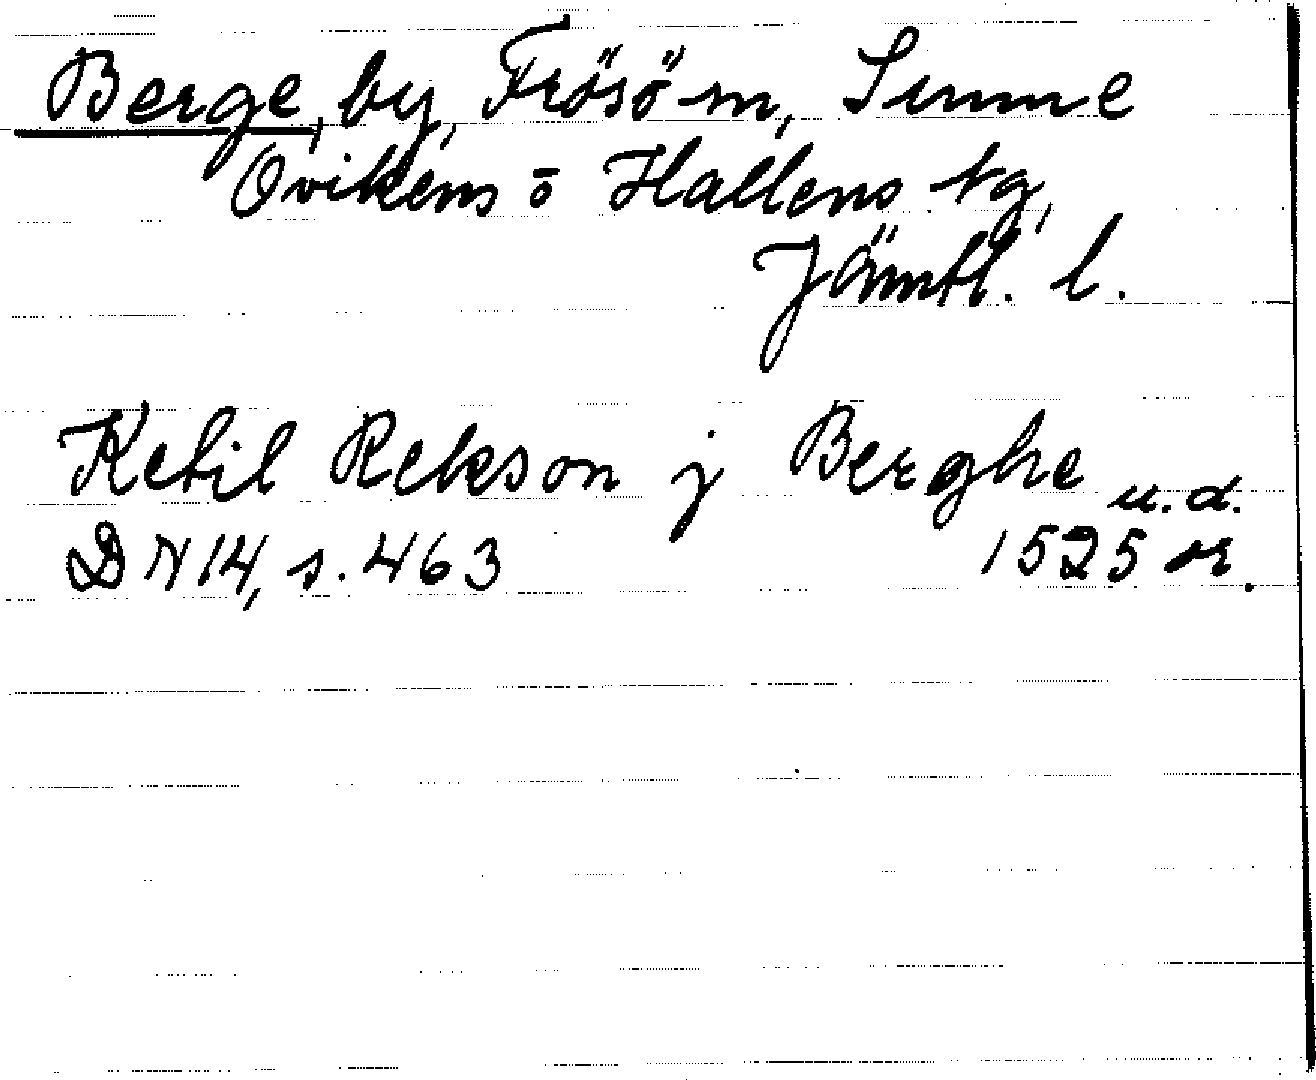 Berge, by, Frösö sn, Sunne
Ovikens o Hallens tg,
Jämtl. l.
Ketil Rekson j Berghe u.d.
DN 14, s. 463 1525 or.